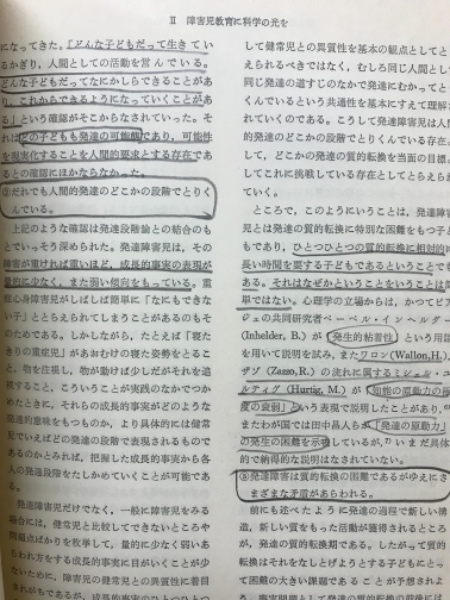 II 障害児教育に科学の光を
になってきた。「どんな子どもだって生きてい
るかぎり、人間としての活動を営んでいる。
どんな子どもだってなにかしらできることがあ
り、これからできるようになっていくことがあ
る」という確認がそこからなされていった。そ
れはどの子どもも発達の可能態であり、可能性
を現実化することを人間的要求とする存在であ
るとの確認にほかならなかった。
②だれでも人間的発達のどこかの段階でとりく
んでいる。
上記のような確認は発達段階論との結合のも
とでいっそう深められた。発達障害児は、その
障害が重ければ重いほど、成長的事実の表現が
量的に少なく、また弱い傾向をもっている。重
症心身障害児がしばしば簡単に「なにもできな
い子」ととらえられてしまうことがあるのもそ
のためである。しかしながら、たとえば「寝た
きりの重症児」があおむけの寝た姿勢をとるこ
と、物を注視し、物が動けば少しだがそれを追
視すること、こういうことが実践のなかでつか
めたときに、それらの成長的事実がどのような
発達的意味をもつものか、より具体的には健常
児でいえばどの発達の段階で表現されるもので
あるのかとみれば、把握した成長的事実から各
人の発達段階をたしかめていくことが可能であ
る。
発達障害児だけでなく、一般に障害児をみる
場合には、健常児と比較してできないところや
問題点ばかりを枚挙して、量的に少なく弱いあ
らわれ方をする成長的事実に目がいくことが少
ないために、障害児の健常児との異質性に着目
されがちであるが、成長的事実のひとつひとつ
して健常児との異質性を基本の観点としてと
えられるべきではなく、むしろ同じ人間とし
同じ発達の道すじのなかで発達にむかってと
くんでいるという共通性を基本にすえて理解
れていくのである。こうして発達障害児は人
的発達のどこかの段階でとりくんでいる存在
して、どこかの発達の質的転換を当面の目標
してこれに挑戦している存在としてとらえら
ていく。
ところで、このようにいうことは、発達障
児とは発達の質的転換に特別な困難をもつ子
もであり、ひとつひとつの質的転換に相対的
長い時間を要する子どもであるということで
ある。それはなぜかということをいうことは
単ではない。心理学の立場からは、かつてピ
ジェの共同研究者ベーベル・インヘルダ
(Inhelder, B.) が「発生的粘着性」という用
を用いて説明を試み、またワロン(Wallon,H.)、
ザゾ (Zazzo,R.) の流れに属するミシェル・ユ
ルティグ (Hurtig, M.) が「知能の原動力の
度の衰弱」という表現で説明したことがあり、
またわが国では田中昌人らが「発達の原動力」
の発生の困難を示唆しているが、7) いまだ具体
的で納得的な説明はなされていない。
③発達障害は質的転換の困難であるがゆえにさ
まざまな矛盾があらわれる。
前にも述べたように発達の過程で新しい構
造、新しい質をもった活動が獲得されるところ
が、発達の質的転換期である。したがって質的
転換はそれをなしとげようとする子どもにとっ
て困難の大きい課題であることが予想されよ